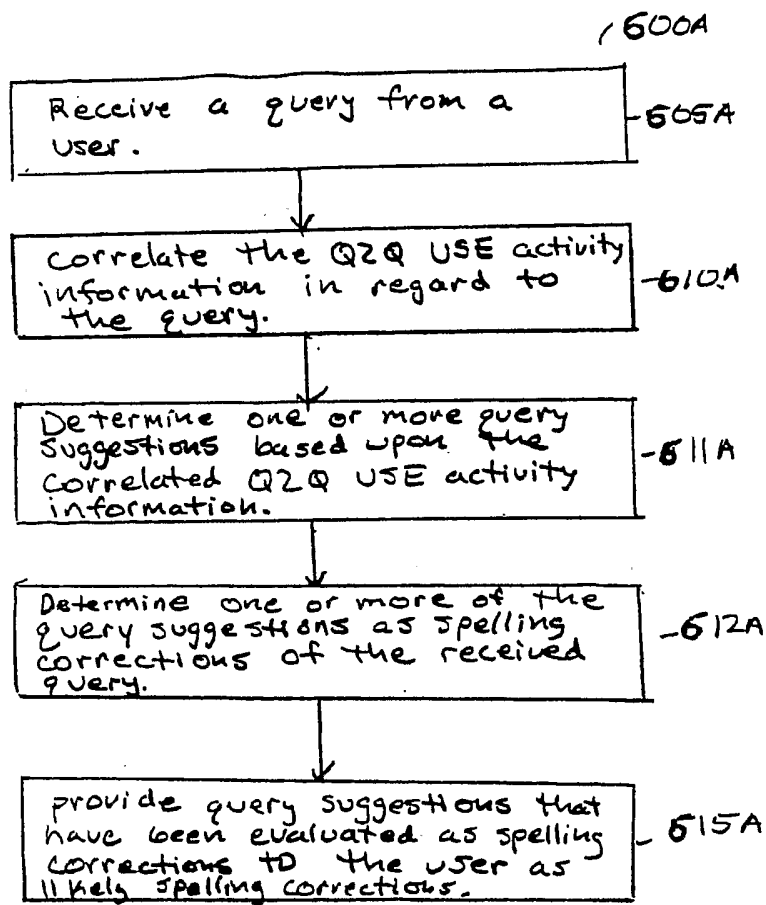 600A
Receive a query from a
user.
605A
correlate the Q2Q USE activity
information in regard to
the query.
610A
Determine one or more query
suggestions based upon the
correlated Q2Q USE activity
information.
611A
Determine one or more of the
query suggestions as spelling
corrections of the received
query.
612A
provide query suggestions that
have been evaluated as spelling
corrections to the user as
likely spelling corrections.
615A